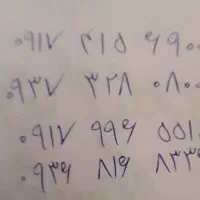 ۰۹۱۷ ۴۱۵ ۶۹۰۰
۰۹۳۷ ۳۲۸ ۰۸۰۰
۰۹۱۷ ۹۹۶ ۵۵۱۰
۰۹۳۶ ۸۱۶ ۸۳۳۶